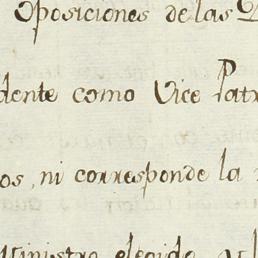 Oposiciones de las
dente como Vice Patr
os, ni corresponde la
Ministro elegido, y l